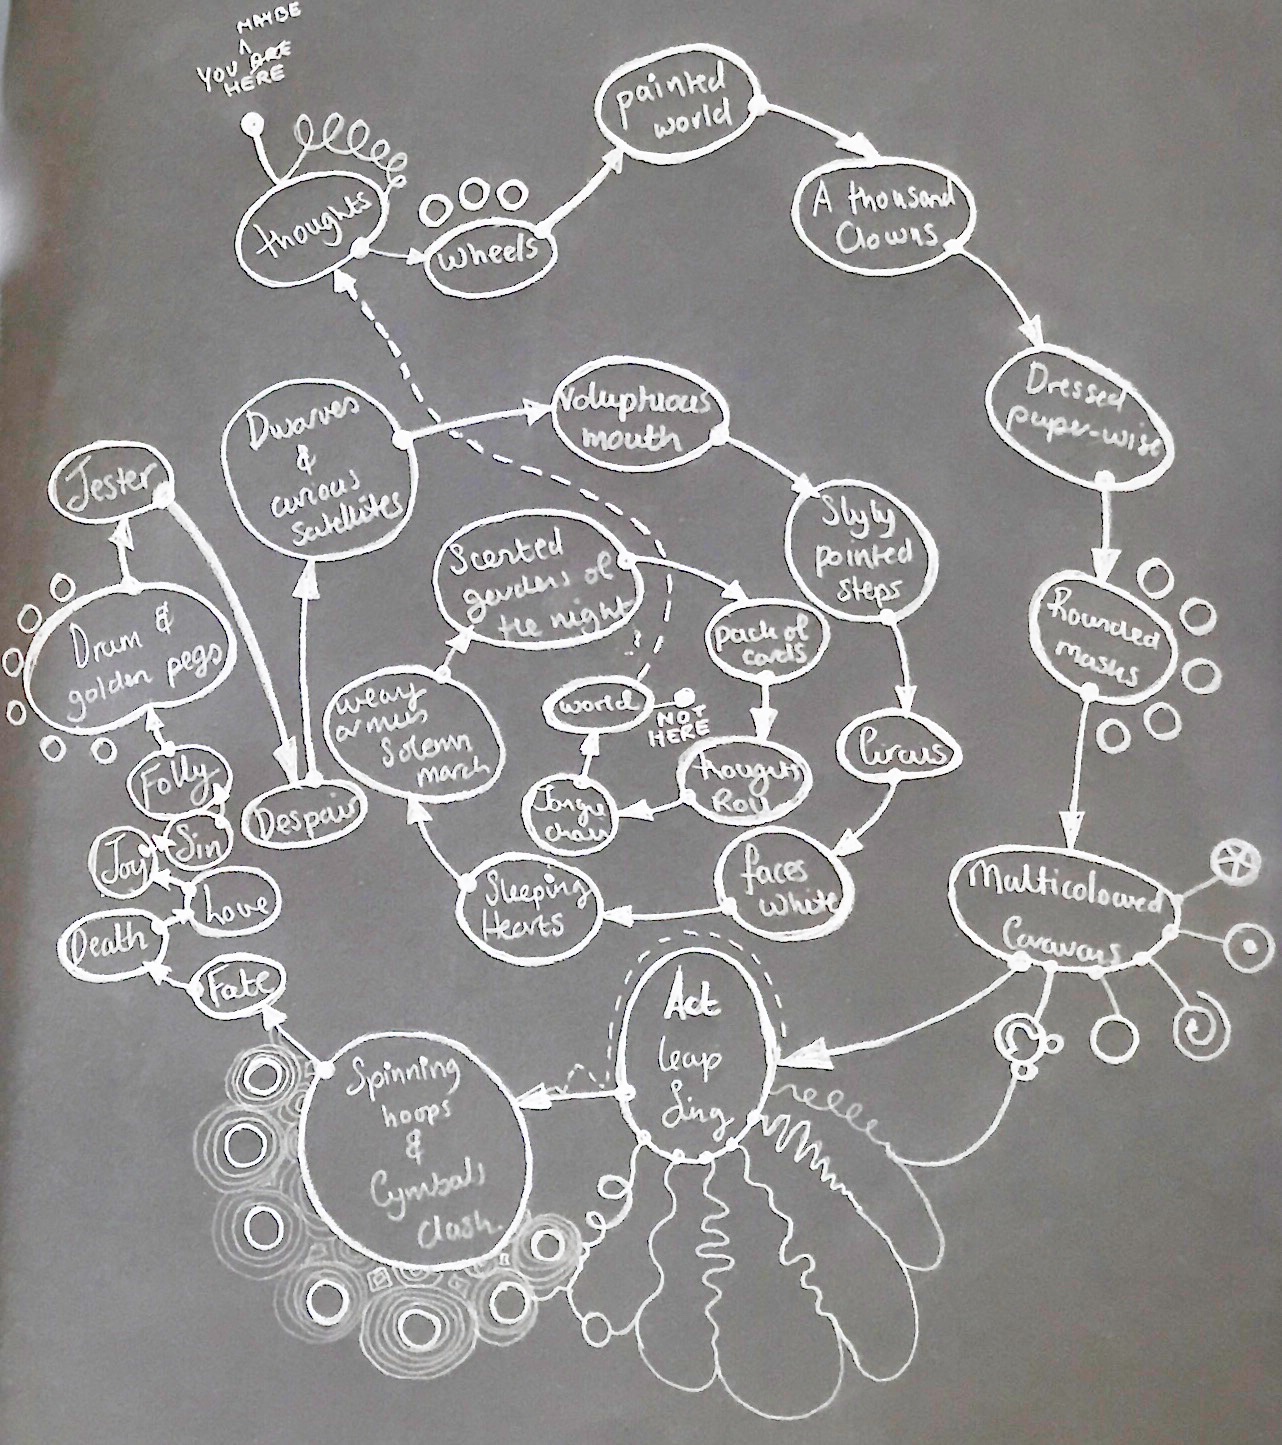 MAYBE
^
YOU ARE
HERE
thoughts
wheels
painted
world
A thousand
Clowns
Dressed
paper-wise
Rounded
masks
Multicoloured
Caravans
Act
leap
Sing
Spinning
hoops
&
Cymbals
clash.
Fate
Death
Love
Joy
Sin
Folly
Drum &
golden pegs
Jester
Despair
Dwarves
&
curious
satellites
Voluptuous
mouth
Slyly
pointed
steps
Circus
faces
white
Sleeping
Hearts
weary
Solemn
march
Scented
gardens of
the night
pack of
cards
thoughts
Roll
world
NOT
HERE